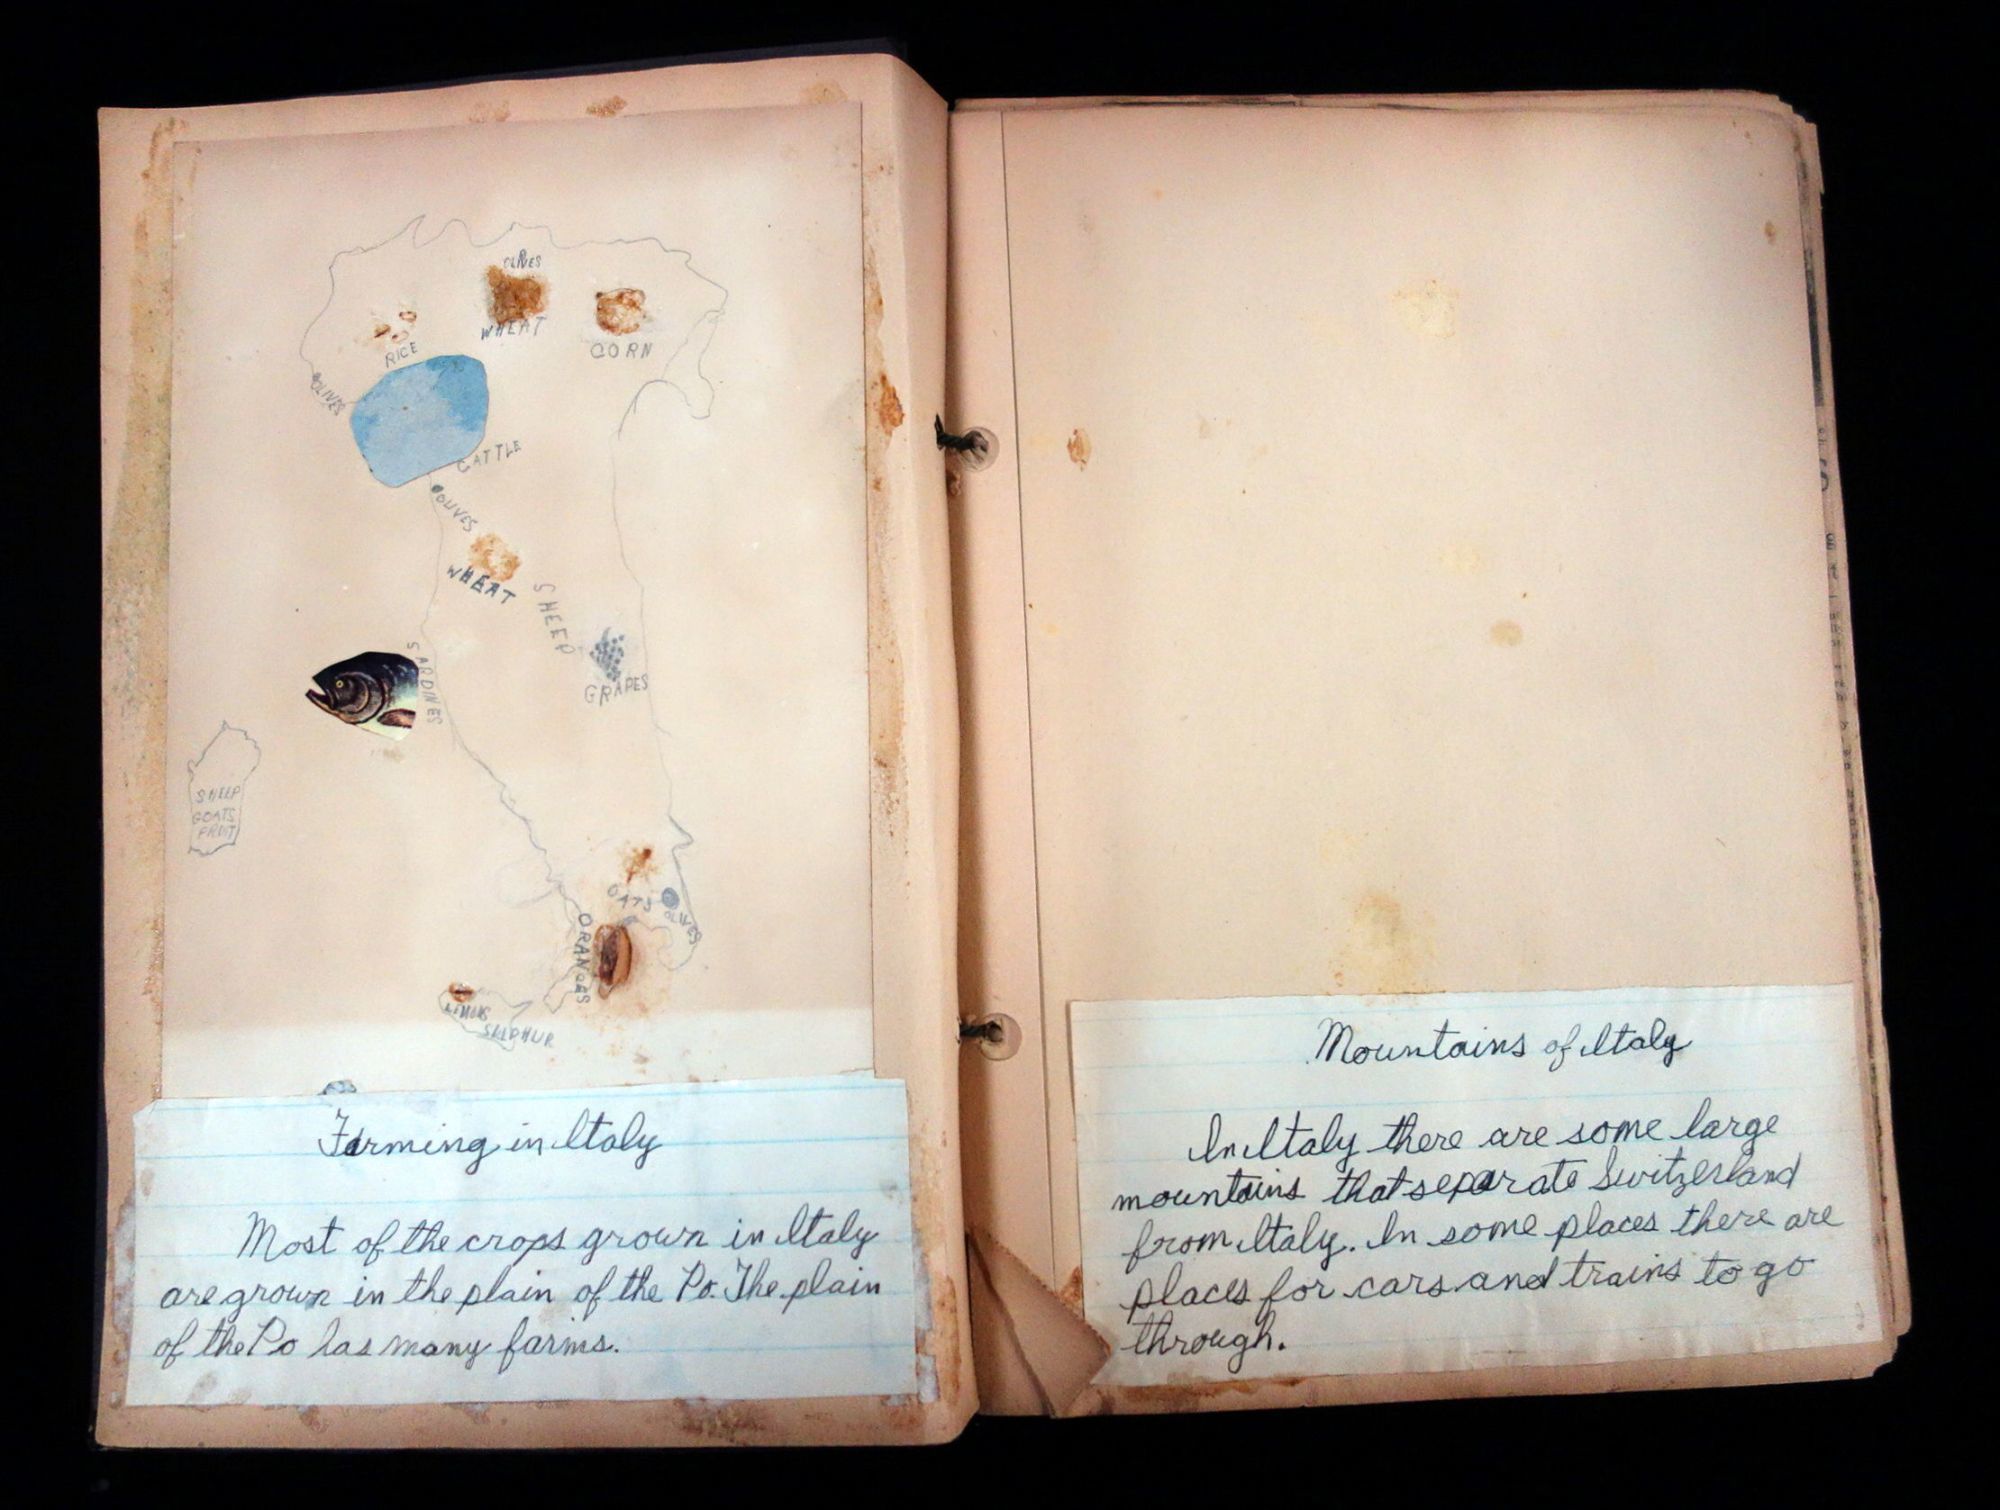 OLIVES
WHEAT
CORN
RICE
OLIVES
CATTLE
OLIVES
WHEAT
SHEEP
GRAPES
SARDINES
SHEEP
GOATS
FRUIT
OATS
OLIVES
ORANGES
LEMONS
SULPHUR
Farming in Italy
Most of the crops grown in Italy
are grown in the plain of the Po. The plain
of the Po has many farms.
Mountains of Italy
In Italy there are some large
mountains that separate Switzerland
from Italy. In some places there are
places for cars and trains to go
through.